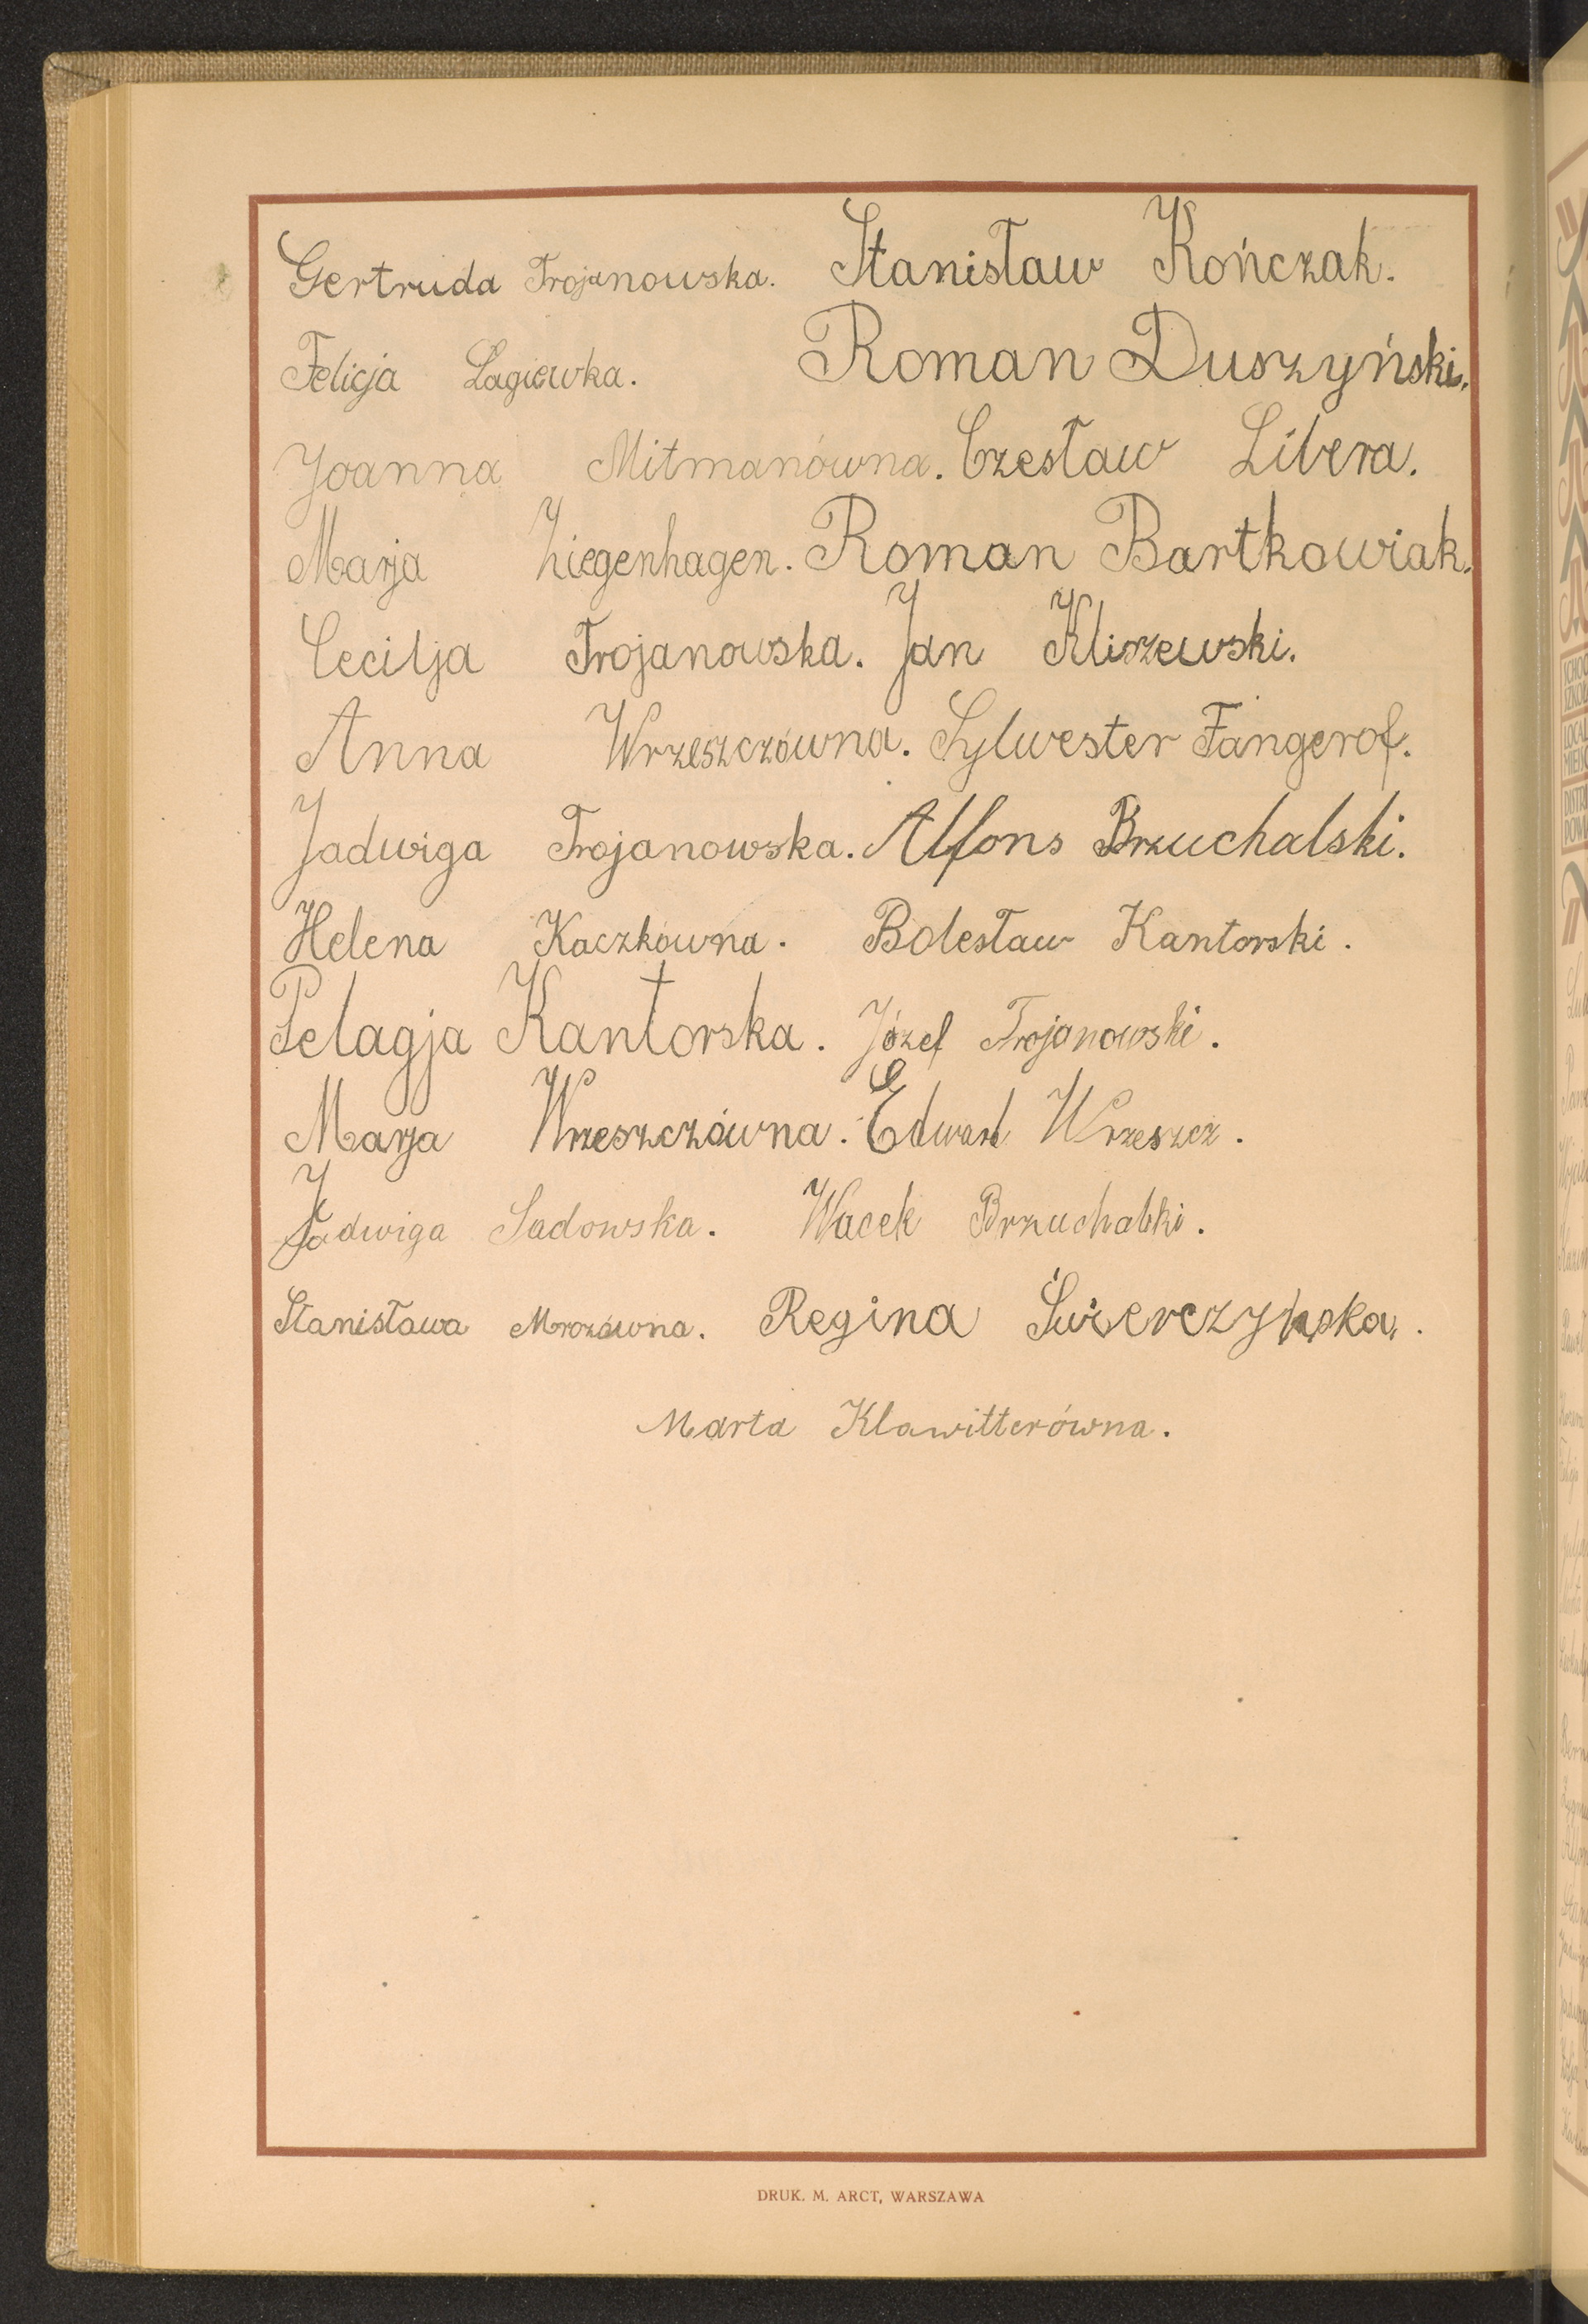 Gertruda Trojanowska. Stanisław Kończak.
Felicja Łagiewka. Roman Duszyński.
Joanna Mitmanówna. Czesław Libera.
Marja Ziegenhagen. Roman Bartkowiak.
Cecilja Trojanowska. Jan Kliszewski.
Anna Wrzeszczówna. Sylwester Fangerof.
Jadwiga Trojanowska. Alfons Brzuchalski.
Helena Kaczkówna. Bolesław Kantorski.
Pelagja Kantorska. Józef Trojanowski.
Marja Wrzeszczówna. Edward Wrzeszcz.
Jadwiga Sadowska. Wacek Brzuchalski.
Stanisława Mrozówna. Regina Świerczyńska.
Marta Klawitterówna.
DRUK. M. ARCT, WARSZAWA